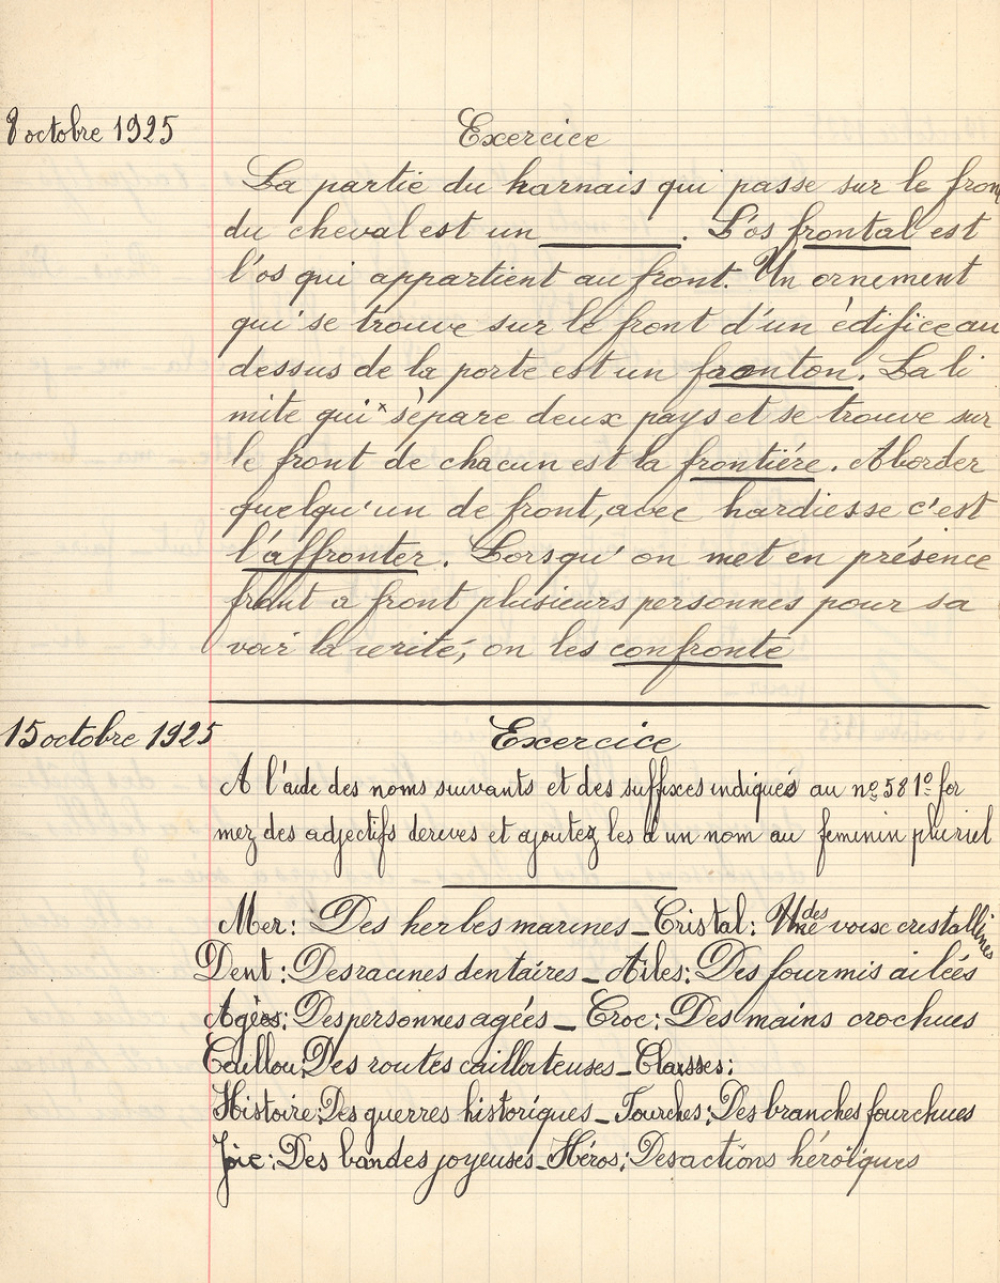 8 octobre 1925
Exercice
La partie du harnais qui passe sur le fron
du cheval est un ________. L'os frontal est
l'os qui appartient au front. Un ornement
qui se trouve sur le front d'un édifice au
dessus de la porte est un fronton. La li
mite qui sépare deux pays et se trouve sur
le front de chacun est la frontiére. Aborder
quelqu'un de front, avec hardiesse c'est
l'affronter. Lorsqu'on met en présence
front a front plusieurs personnes pour sa
voir la verité, on les confronte
15 octobre 1925
Exercice
A l'aide des noms suivants et des suffixes indiqués au nº 58 1º for
mez des adjectifs derives et ajoutez les a un nom au feminin pluriel
Mer: Des herbes marines _ Cristal: Une des voix cristallines
Dent: Des racines dentaires _ Ailes: Des fourmis ailées
Ages: Des personnes agées _ Croc: Des mains crochues
Caillou: Des routes caillouteuses _ Classes:
Histoire: Des guerres historiques _ Fourches: Des branches fourchues
Joie: Des bandes joyeuses _ Héros: Des actions héroïques